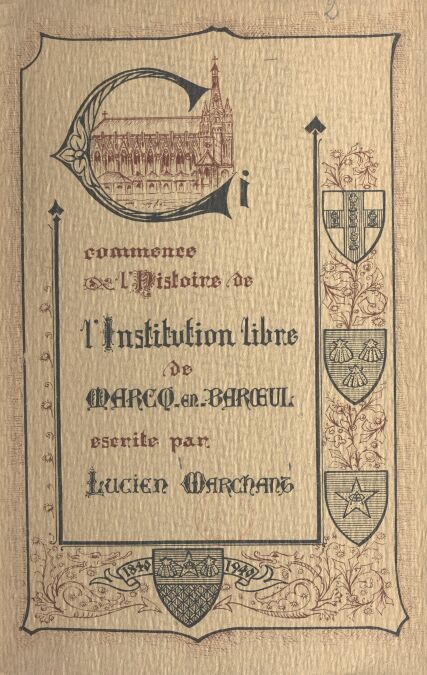 2
Ci
commence
l'Histoire de
l'Institution libre
de
MARCQ-en-BARŒUL
escrite par
Lucien Marchant
1840 1940